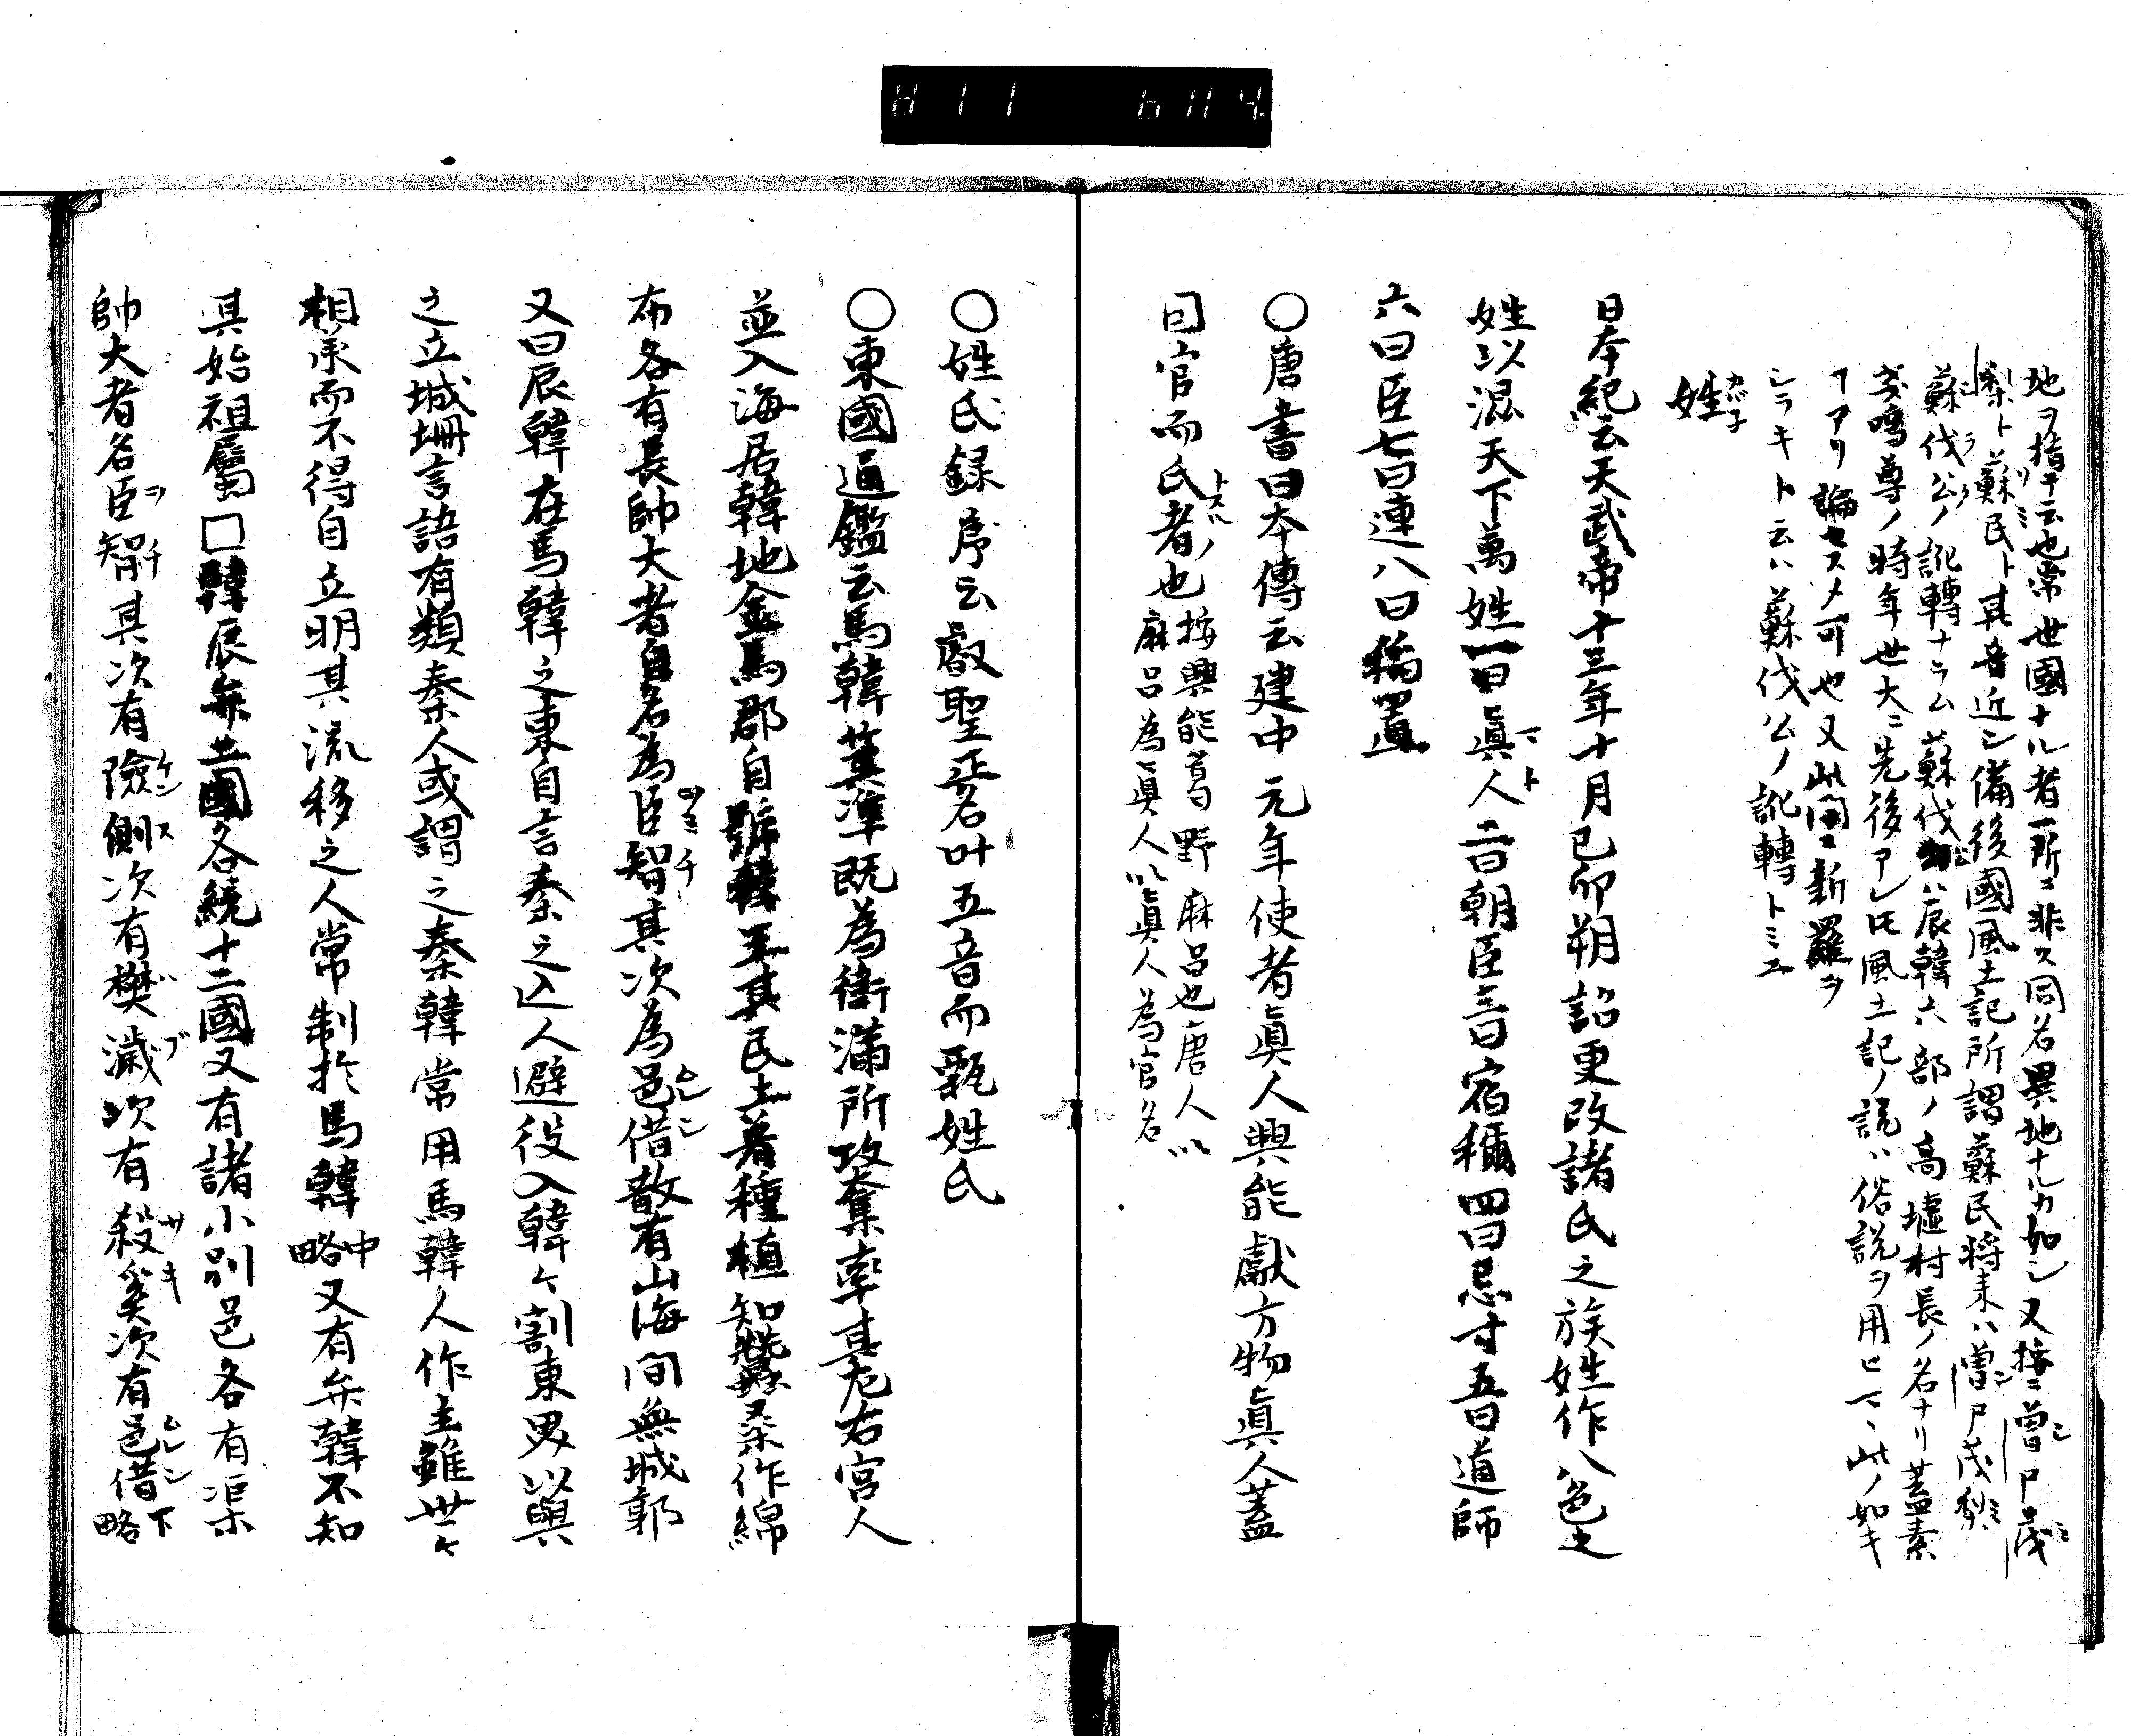 地ヲ指テ云也常世國ナル者一所ニ非ス同名異地ナルカ如シ又按ニ曽尸茂
梨ト蘇民ト其音近シ備後國風土記所謂蘇民将来ハ曽尸茂梨
蘇伐公ノ訛轉ナラム蘇伐公ハ辰韓六部ノ高墟村長ノ名ナリ蓋素
戔嗚尊ノ時年世大ニ先後アレ𪜈風土記ノ説ハ俗説ヲ用ヒテ此ノ如キ
ヿアリ論セスメ可也又此間ニ新羅ヲ
シラキト云ハ蘇伐公ノ訛轉トミエ
姓
日本紀云天武帝十三年十月己卯朔詔更改諸氏之族姓作八色之
姓以混天下萬姓一曰眞人二曰朝臣三曰宿禰四曰忌寸五曰道師
六曰臣七曰連八曰稲置
〇唐書日本傳云建中元年使者眞人興能獻方物眞人蓋
因官而氏者也按興能葛野麻呂也唐人以
麻呂為眞人以眞人為官名
〇姓氏録序云叡聖正名叶五音而甄姓氏
〇東國通鑑云馬韓箕準既為衛滿所攻奪率其左右宮人
並入海居韓地金馬郡自號韓王其民土着種植知蠶桑作綿
布各有長帥大者自名為臣智其次為邑借散有山海間無城郭
又曰辰韓在馬韓之東自言秦之亾人避役入韓々割東界以與
之立城柵言語有類秦人或謂之秦韓常用馬韓人作主雖世々
相承而不得自立明其流移之人常制於馬韓中略又有弁韓不知
其始祖屬□韓辰弁二國各統十二國又有諸小別邑各有渠
帥大者名臣智其次有險側次有樊濊次有殺奚次有邑借下略